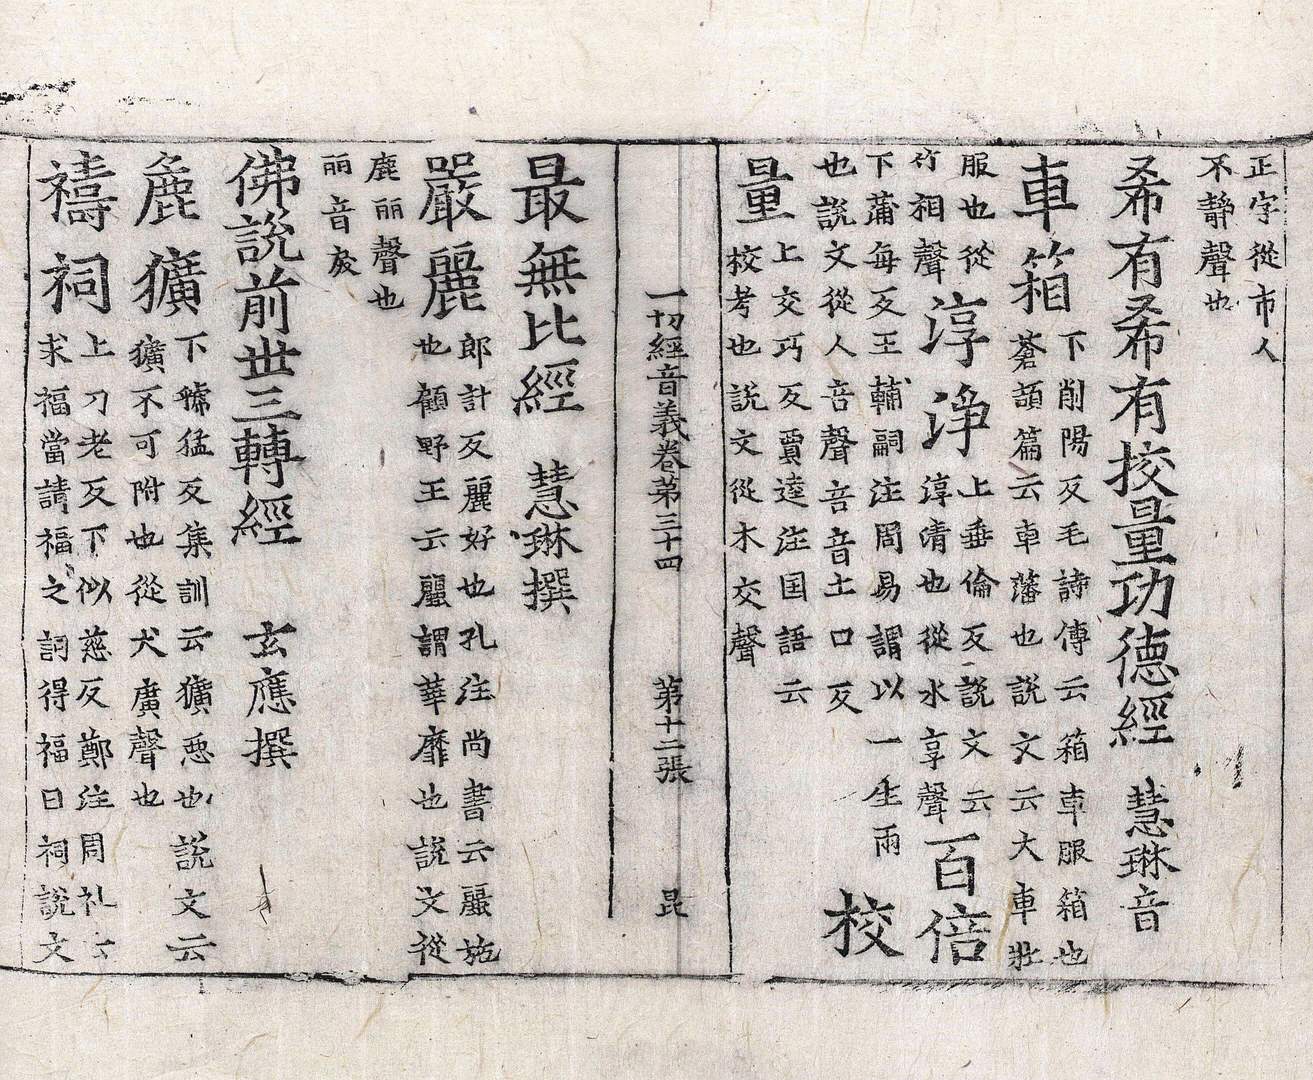 正字從市人
不靜聲也
希有希有校量功德經 慧琳音
車箱 下削陽反毛詩傳云箱車服箱也
蒼頡篇云車藩也說文云大車壯
服也從
竹相聲
淳浄 上垂倫反說文云
淳清也從水享聲
百倍
下蒲每反王輔嗣注周易謂以一生兩
也說文從人咅聲咅音土口反
校
量 上交巧反賈逵注国語云
校考也說文從木交聲
一切經音義卷第三十四 第十二張 昆
最無比經 慧琳撰
嚴麗 郎計反麗好也孔注尚書云麗施
也顧野王云麗謂華靡也說文從
鹿丽聲也
丽音戾
佛說前世三轉經 玄應撰
麁獷 下虢猛反集訓云獷惡也說文云
獷不可附也從犬廣聲也
禱祠 上刀老反下似慈反鄭注周礼云
求福當請福之詞得福曰祠說文